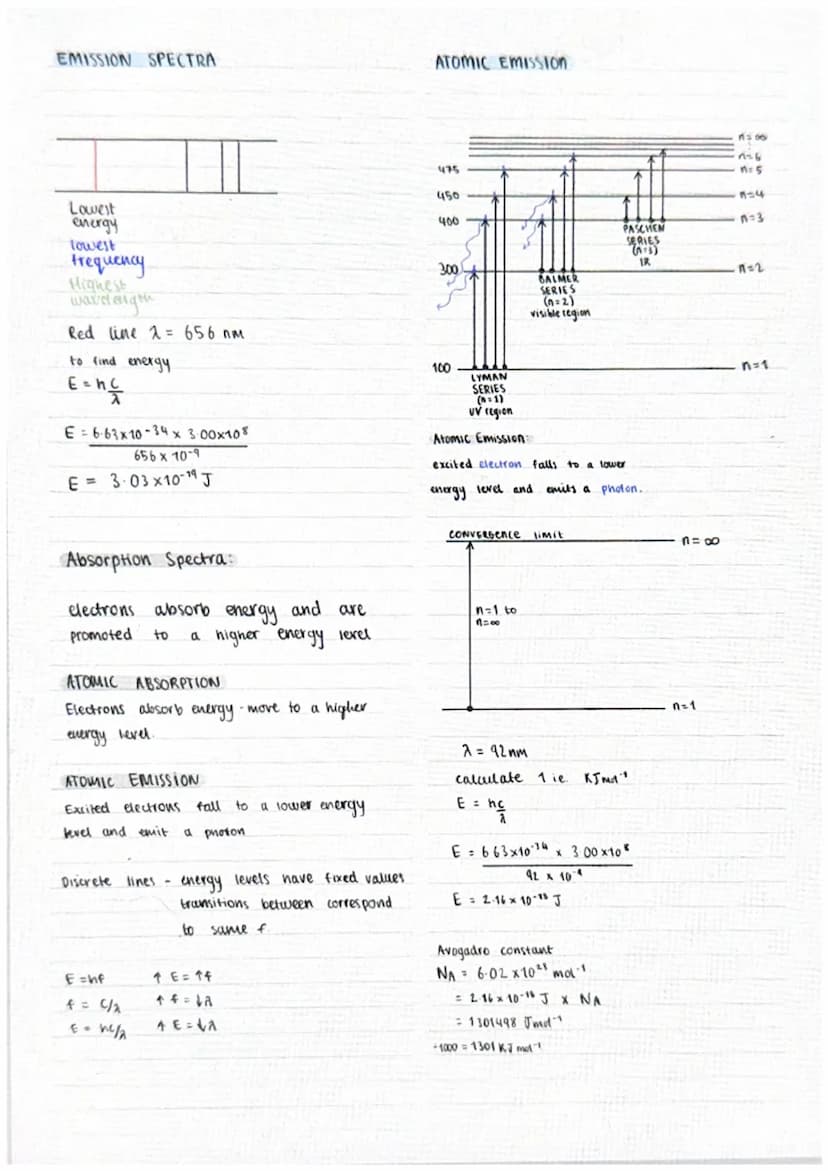 EMISSION SPECTRA
Lowest
energy
lowest
frequency
Highest
wavelength
Red line λ = 656 nm
to find energy
E = h c/λ
E = 6.63x10⁻³⁴ x 3.00x10⁸
656 x 10⁻⁹
E = 3.03 x10⁻¹⁹ J
Absorption Spectra:
electrons absorb energy and are
promoted to a higher energy level
ATOMIC ABSORPTION
Electrons absorb energy - move to a higher
energy level.
ATOMIC EMISSION
Excited electrons fall to a lower energy
level and emit a photon
Discrete lines - energy levels have fixed values
transitions between correspond
to same f.
E = hf ↑ E = ↑ f
f = C/λ ↑ f = ↓ λ
E = hc/λ ↑ E = ↓ λ
ATOMIC EMISSION
n = ∞
n = 6
475 n = 5
450 n = 4
400 n = 3
PASCHEN
SERIES
(n=3)
IR
300 n = 2
BALMER
SERIES
(n=2)
visible region
100 n = 1
LYMAN
SERIES
(n=1)
UV region
Atomic Emission:
excited electron falls to a lower
energy level and emits a photon.
CONVERGENCE limit n = ∞
n=1 to
n=∞
n=1
λ = 92 nm
calculate 1 ie. KJmol⁻¹
E = hc/λ
E = 6.63x10⁻³⁴ x 3.00x10⁸
92 x 10⁻⁹
E = 2.16 x 10⁻¹⁸ J
Avogadro constant
NA = 6.02 x10²³ mol⁻¹
= 2.16 x 10⁻¹⁸ J x NA
= 1301498 Jmol⁻¹
÷1000 = 1301 KJ mol⁻¹